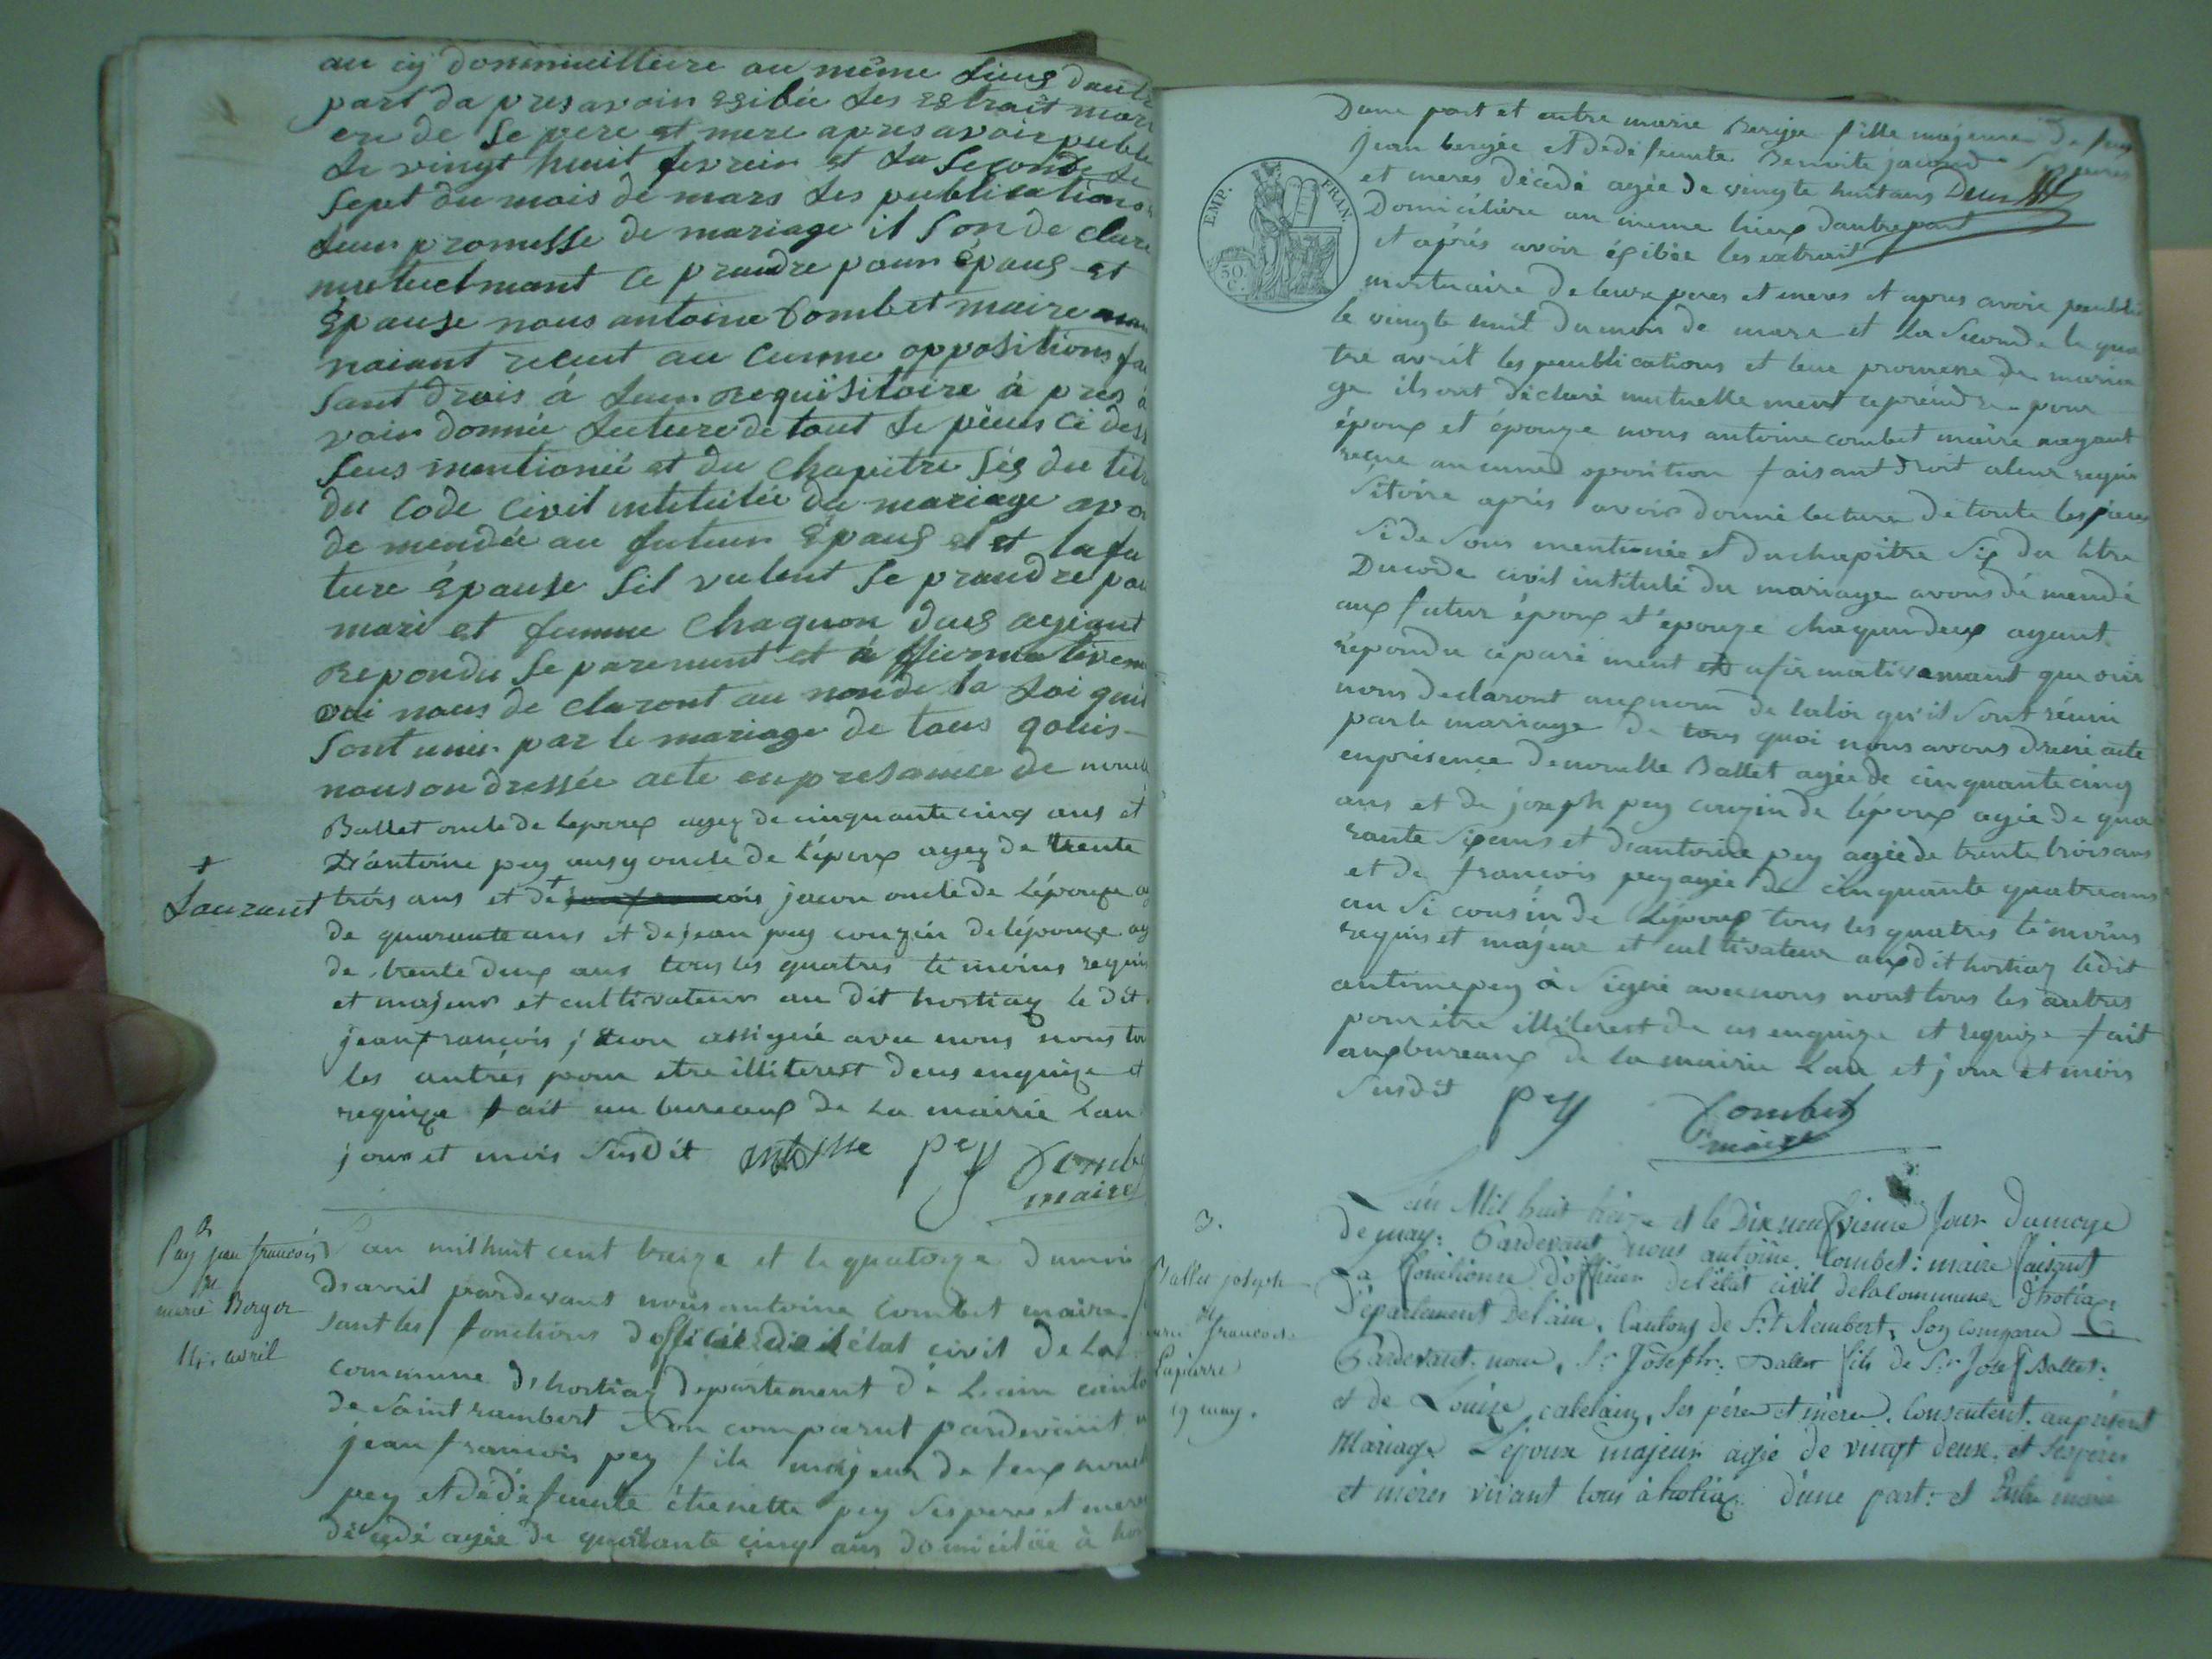 au cij dommicilliere au même Lieug dautr
part da pres avoir Egibée Les Extrait mor
ere de Se pere et mere apres avoir publi
Le vingt huit fevrier et La Seconde Le
Sept du mois de mars Les publications
Leur promesse de mariage il Son de clare
mutuelmant Ce prandre pour Épous et
Épause nous antoine Combet maire
naiant recut au Cunne oppositions fai
Sant drois á Leur requisitoire á pres a
voir donnée Lecture de tout Le pieces Ci des
Seus mentionée et du Chapitre Sig du titr
du Code Civil intitulée du mariage avo
de mendée au futeur Épaug et la fu
ture Épause Sil vulent Se prandre pou
mari et femme Chaquon daug agiant
Repondu Separement et á ffirmativem
oui nous de claront au nom de la Loi quil
Sont unis par le mariage de tous qouis
nous on dressée acte en presance de nouel
Ballet oncle de Lepoux agez de cinquante cinq ans et
D'antoine pey ausy oncle de L'époux agez de trente
trois ans et de + jacon oncle de Lépouze ag
+
Laurant
de quarante ans et de jean pey couzin de lépouze ag
de trente deux ans tous les quatres témoins requis
et majeur et cultivateur au dit hostiaz le dit
jean francois jacon assigné avec nous nous tou
les autres pour etre illiterest deus enquize et
requize fait au bureaux de La mairie Lan
jour et mois Susdit pey Combe
maire
2
Pey jean francois
et
marie Berger
14 avril
Lan mil huit cent treize et le quatorze du moi
d'avril pardevant nous antoine Combet maire f
Sant les fonctions d'officié de l'état civil de La
commune d'hostiaz département de Lain canto
de Saint rambert Son comparut pardevant n
jean francois pey fils majeur de feux nouel
pey et de défeunte étienette pey Ses peres et mere
décédé agée de quarante cinq ans domiciliée à hos
EMP. FRAN.
50. C.
Dune part et entre marie Bergé fille majeure de feux
jean bergée et de défeunte Benoite jacond Ses peres
et meres décédé agée de vingte huit ans
Domicilière au meme lieux dautre part
et après avoir éxibée les extrait
mortuaire de leurs peres et meres et apres avoir peublié
le vingte huit du mois de mars et La Seconde le qua
tre avril les peublications et leur promesse de maria
ge ils ont déclaré mutuellement ce prendre pour
époux et épouze nous antoine combet maire nayant
reçue aucunne oposition faisant droit a leur requi
Sitoire après avoir donné lecture de toute les pieces
Si de Sous mentionée et du chapitre Six du titre
Du code civil intitulé du mariage avons démendé
aux futur époux et épouze chaqun deux ayant
répondu céparément et afirmativemant que oui
nous declaront aux nom de la loi qu'il Sont réunis
par le mariage de tous quoi nous avons dréssé acte
en présence de nouelle Ballet agée de cinquante cinq
ans et de joseph pey couzin de l'époux agée de qua
rante Six ans et d'antoine pey agée de trente trois ans
et de francois pey agée de cinquante quatre ans
au Si cousin de Lépoux tous les quatres témoins
requis et majeur et cultivateur aux dit hostiaz ledit
antoine pey à Signé avec nous nont tous les autres
pour être illiterest de ces enquize et requize fait
aux bureaux de la mairie Lan et jour et mois
Susdit pey Combet
maire
3.
Ballet joseph
et
marie francoise
Lapierre
19 may.
Lán Mil huit treize et le Dix neufvieme Jour du moye
de may: Pardevant nous antoine Combet: maire faisant
La fonctionne d'officier de l'état civil de la Commune d'hotiaz
Département De l'ain, Cantong de S.t Rembert, Son Comparu
Pardevant nous, S.r Joseph: Ballet fils de S.r Josef Ballet:
et de Louize catelain, Ses père et mère. Consentent au présent
Mariage L'époux majeur agé de vingt deuse, et Ses pères
et mères vivant tous à hotiaz d'une part: et Entre marie